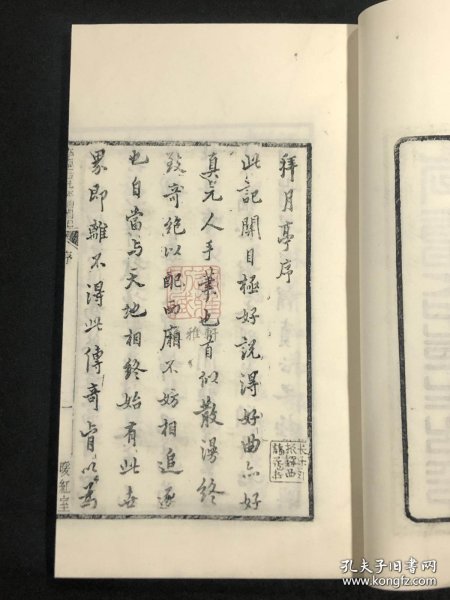 拜月亭序
此記關目極好說得好曲亦好
真元人手筆也首似散漫終
致奇絕以配西廂不妨相追逐
也自當与天地相終始有此世
界即離不得此傳奇肯以為
序
一
暖紅室
孔夫子旧书网
www.kongfz.com